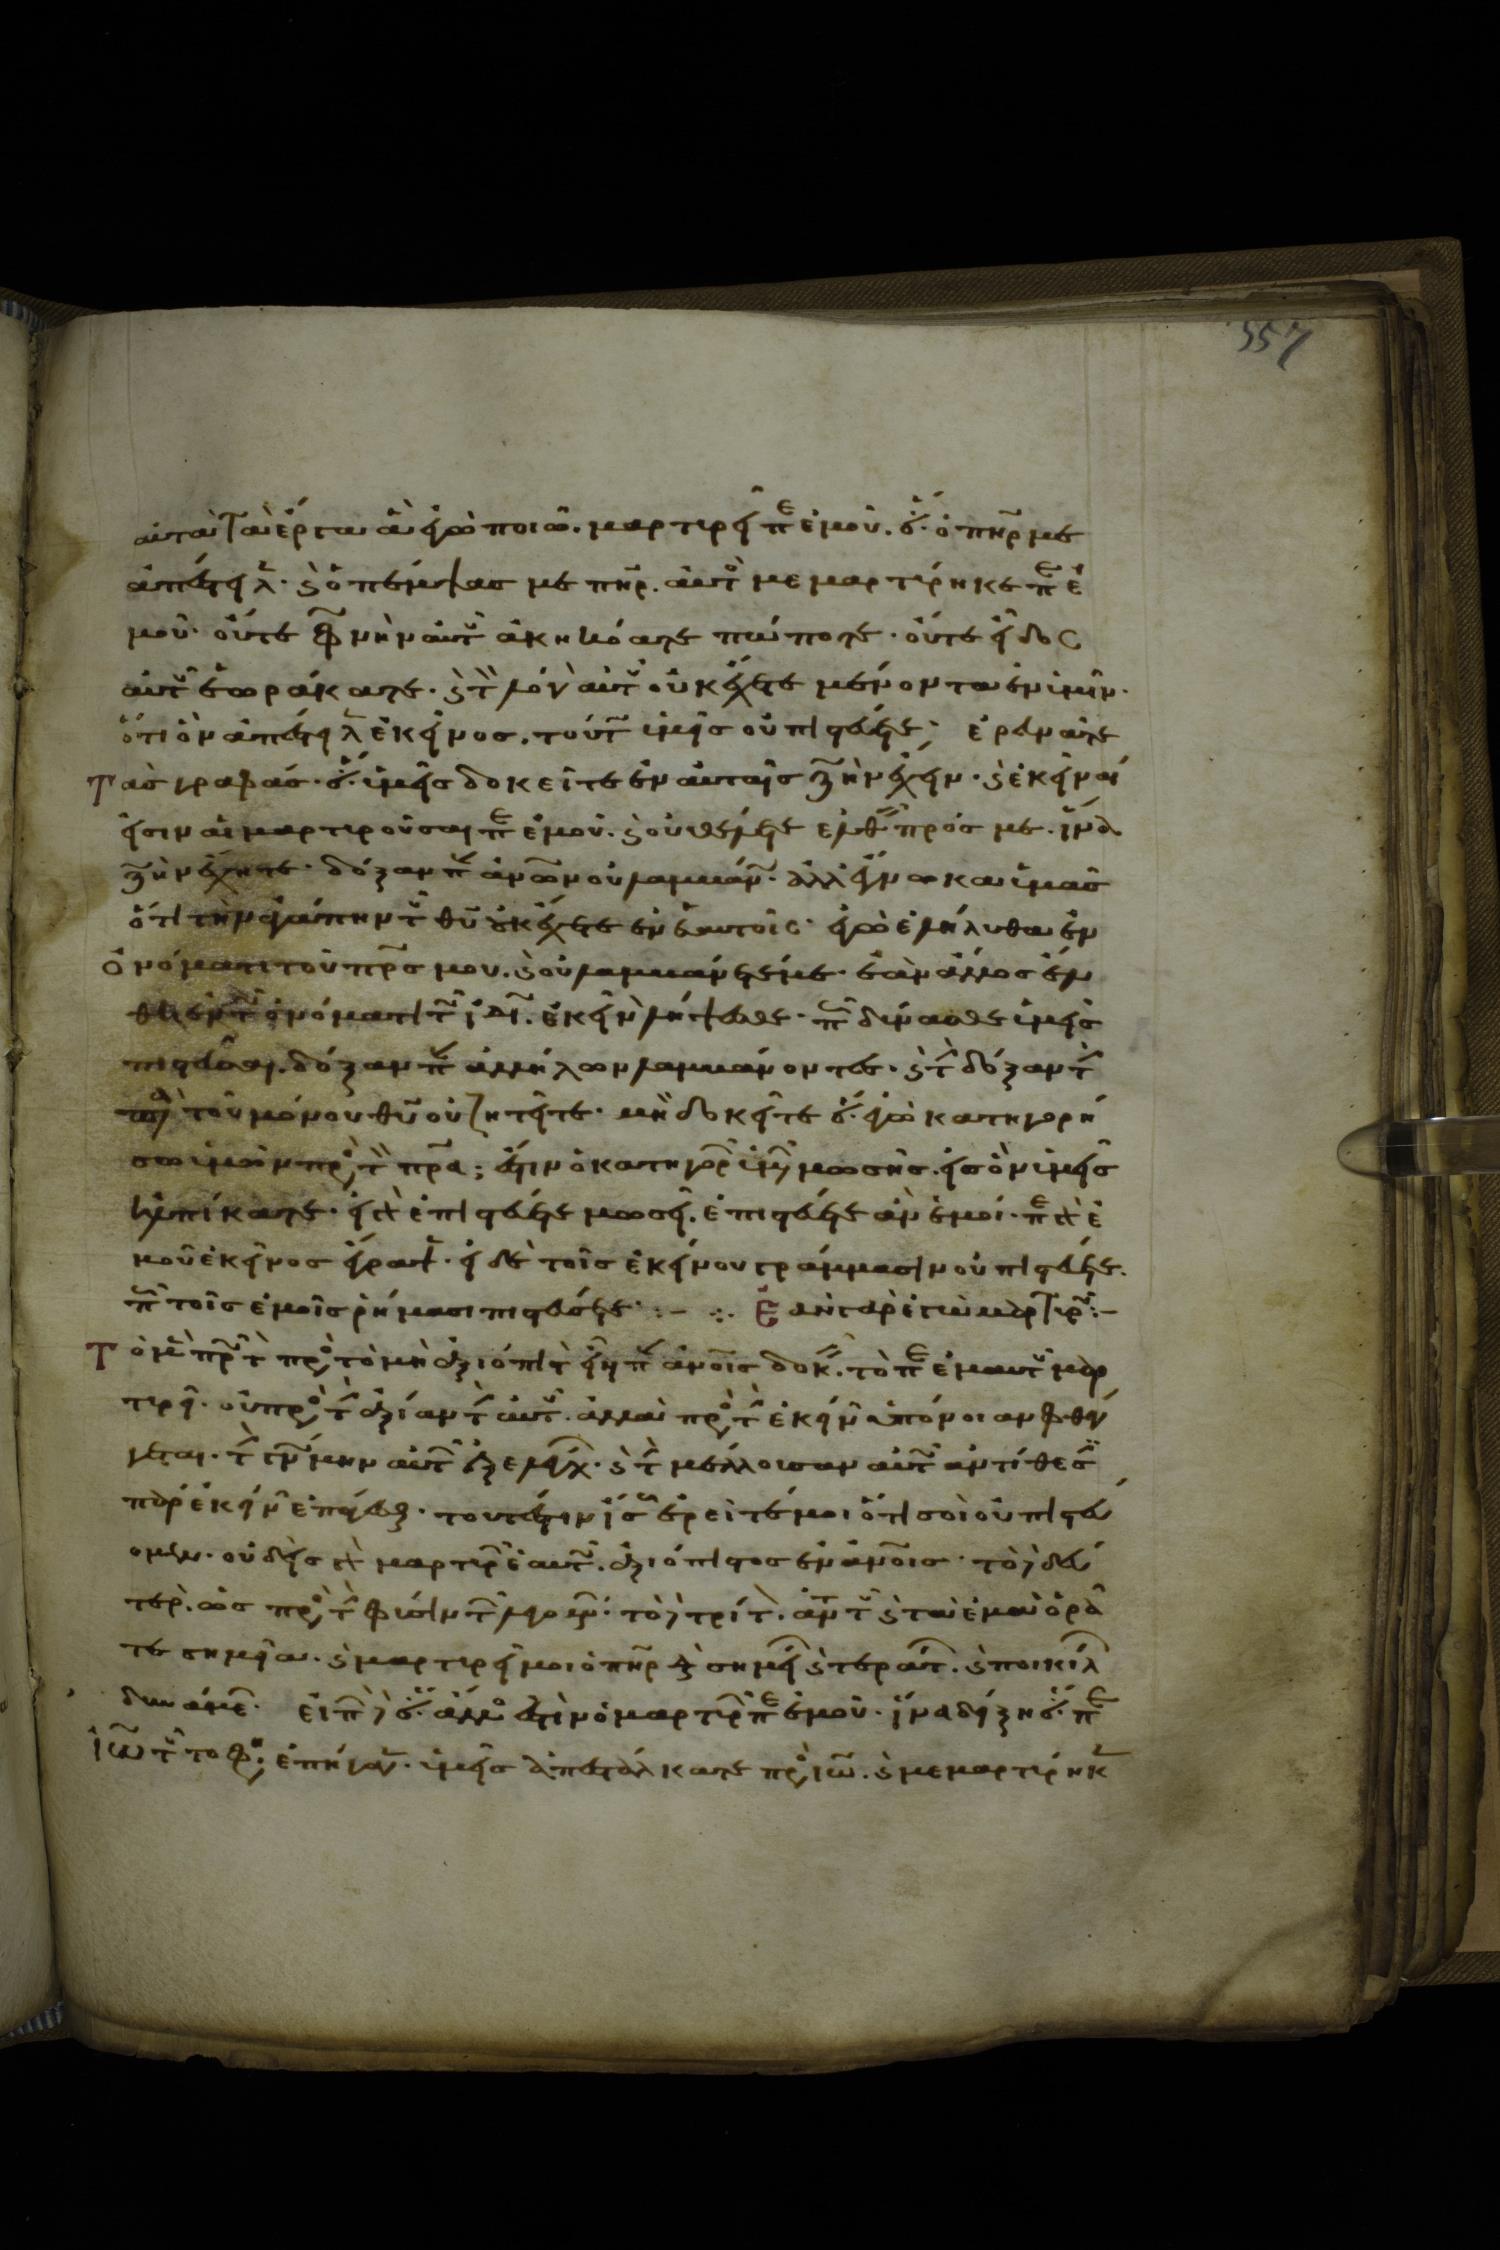 357
αυτὰ τὰ ἔργα ἃ ἐγὼ ποιῶ. μαρτυρεῖ περὶ ἐμοῦ. ὅτι ὁ πηρ με
ἀπέστειλ. καὶ ὁ πέμψας με πηρ. αὐτὸς μεμαρτύρηκε περὶ ἐ
μοῦ. οὔτε φωνὴν αὐτοῦ ἀκηκόατε πώποτε. οὔτε εἶδος
αὐτοῦ ἑωράκατε. καὶ τὸν λόγον αὐτοῦ οὐκ ἔχετε μένοντα ἐν ὑμῖν.
ὅτι ὃν ἀπέστειλ ἐκεῖνος. τούτω ὑμεῖς οὐ πιστεύετε. ἐρευνᾶτε
τὰς γραφάς. ὅτι ὑμεῖς δοκεῖτε ἐν αὐταῖς ζωὴν ἔχειν. καὶ ἐκεῖναί
εἰσιν αἱ μαρτυροῦσαι περὶ ἐμοῦ. καὶ οὐ θέλετε ἐλθεῖν πρός με. ἵνα
ζωὴν ἔχητε. δόξαν παρὰ ἀνων οὐ λαμβάνω. ἀλλ ἔγνωκα ὑμᾶς
ὅτι τὴν ἀγάπην τοῦ θυ οὐκ ἔχετε ἐν ἑαυτοῖς. ἐγὼ ἐλήλυθα ἐν
ὀνόματι τοῦ πρς μου. καὶ οὐ λαμβάνετέ με. ἐὰν ἄλλος ἔλ
θη ἐν τῶ ὀνόματι τῶ ἰδίω. ἐκεῖνον λήψεσθε. πῶς δύνασθε ὑμεῖς
πιστεῦσαι. δόξαν παρὰ ἀλλήλων λαμβάνοντες. καὶ τὴν δόξαν τὴν
παρὰ τοῦ μόνου θυ οὐ ζητεῖτε. μὴ δοκεῖτε ὅτι ἐγὼ κατηγορή
σω ὑμῶν πρὸς τὸν πρα; ἔστιν ὁ κατηγορῶν ὑμῶν μωσῆς. εἰς ὃν ὑμεῖς
ἠλπίκατε. εἰ γὰρ ἐπιστεύετε μωσεῖ. ἐπιστεύετε ἂν ἐμοί. περὶ γὰρ ἐ
μοῦ ἐκεῖνος ἔγραψεν. εἰ δὲ τοῖς ἐκείνου γράμμασιν οὐ πιστεύετε.
πῶς τοῖς ἐμοῖς ῥήμασι πιστεύσετε :–
τὸ μὲν πρῶτον πρὸς τὸ μὴ ἀξιόπιστον εἶναι παρὰ ἀνοις δοκεῖν. τὸ περὶ ἐμαυτοῦ μαρ
τυρεῖν. οὐ πρὸς τὴν ἀξίαν τὴν αὐτοῦ. ἀλλὰ πρὸς τὴν ἐκείνων ὑπόνοιαν φθέγ
γεται. τὴν γνώμην αὐτῶν ἐξελέγχων. καὶ τὴν μέλλουσαν αὐτῶ ἀντίθεσιν
παρ ἐκείνων ἐπάγεσθαι. τουτέστιν ἴσως ἐρεῖτέ μοι ὅτι σοὶ οὐ πιστεύ
ομεν. οὐδεὶς γὰρ μαρτυρῶν ἑαυτῶ. ἀξιόπιστος ἐν ἀνοις. τὸ δὲ δεύ
τερον. ὡς πρὸς τὴν φύσιν τῶν λεγομένων. τὸ δὲ τρίτον. ἀντὶ τοῦ καὶ τὰ ἐμὰ ὁρᾶ
τε σημεῖα. καὶ μαρτυρεῖ μοι ὁ πηρ διὰ σημείων καὶ τεράτων. καὶ ποικίλων
δυνάμεων. εἰπὼν δὲ ὅτι ἄλλος ἐστὶν ὁ μαρτυρῶν περὶ ἐμοῦ. ἵνα δείξη ὅτι περὶ
ἰω τοῦτο φησ, ἐπήγαγεν. ὑμεῖς ἀπεστάλκατε πρὸς ἰω. καὶ μεμαρτύρηκε